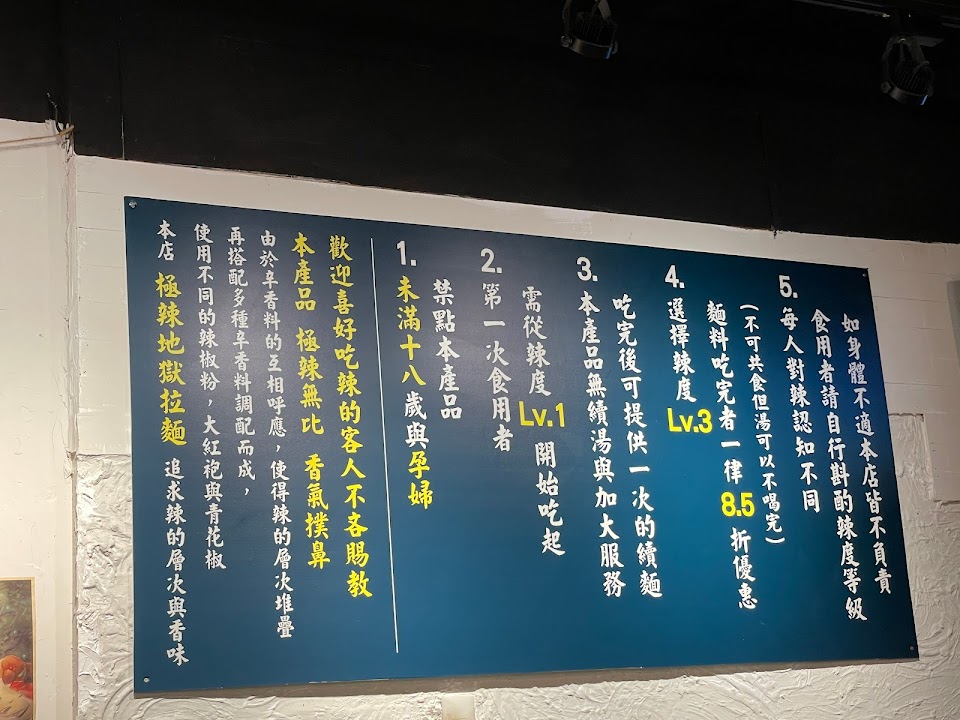 本店 極辣地獄拉麵 追求辣的層次與香味
使用不同的辣椒粉，大紅袍與青花椒
再搭配多種辛香料調配而成，
由於辛香料的互相呼應，使得辣的層次堆疊
本產品 極辣無比 香氣撲鼻
歡迎喜好吃辣的客人不吝賜教
1. 未滿十八歲與孕婦
禁點本產品
2. 第一次食用者
需從辣度 Lv.1 開始吃起
3. 本產品無續湯與加大服務
吃完後可提供一次的續麵
4. 選擇辣度 Lv.3
麵料吃完者一律 8.5 折優惠
(不可共食但湯可以不喝完)
5. 每人對辣認知不同
食用者請自行斟酌辣度等級
如身體不適本店皆不負責